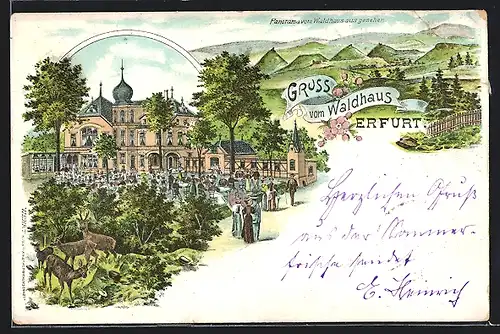 Panorama vom Waldhaus aus gesehen
GRUSS
vom Waldhaus
ERFURT.
Herzlichen Gruß
aus der Sommer-
frische sendet
E. Heinrich